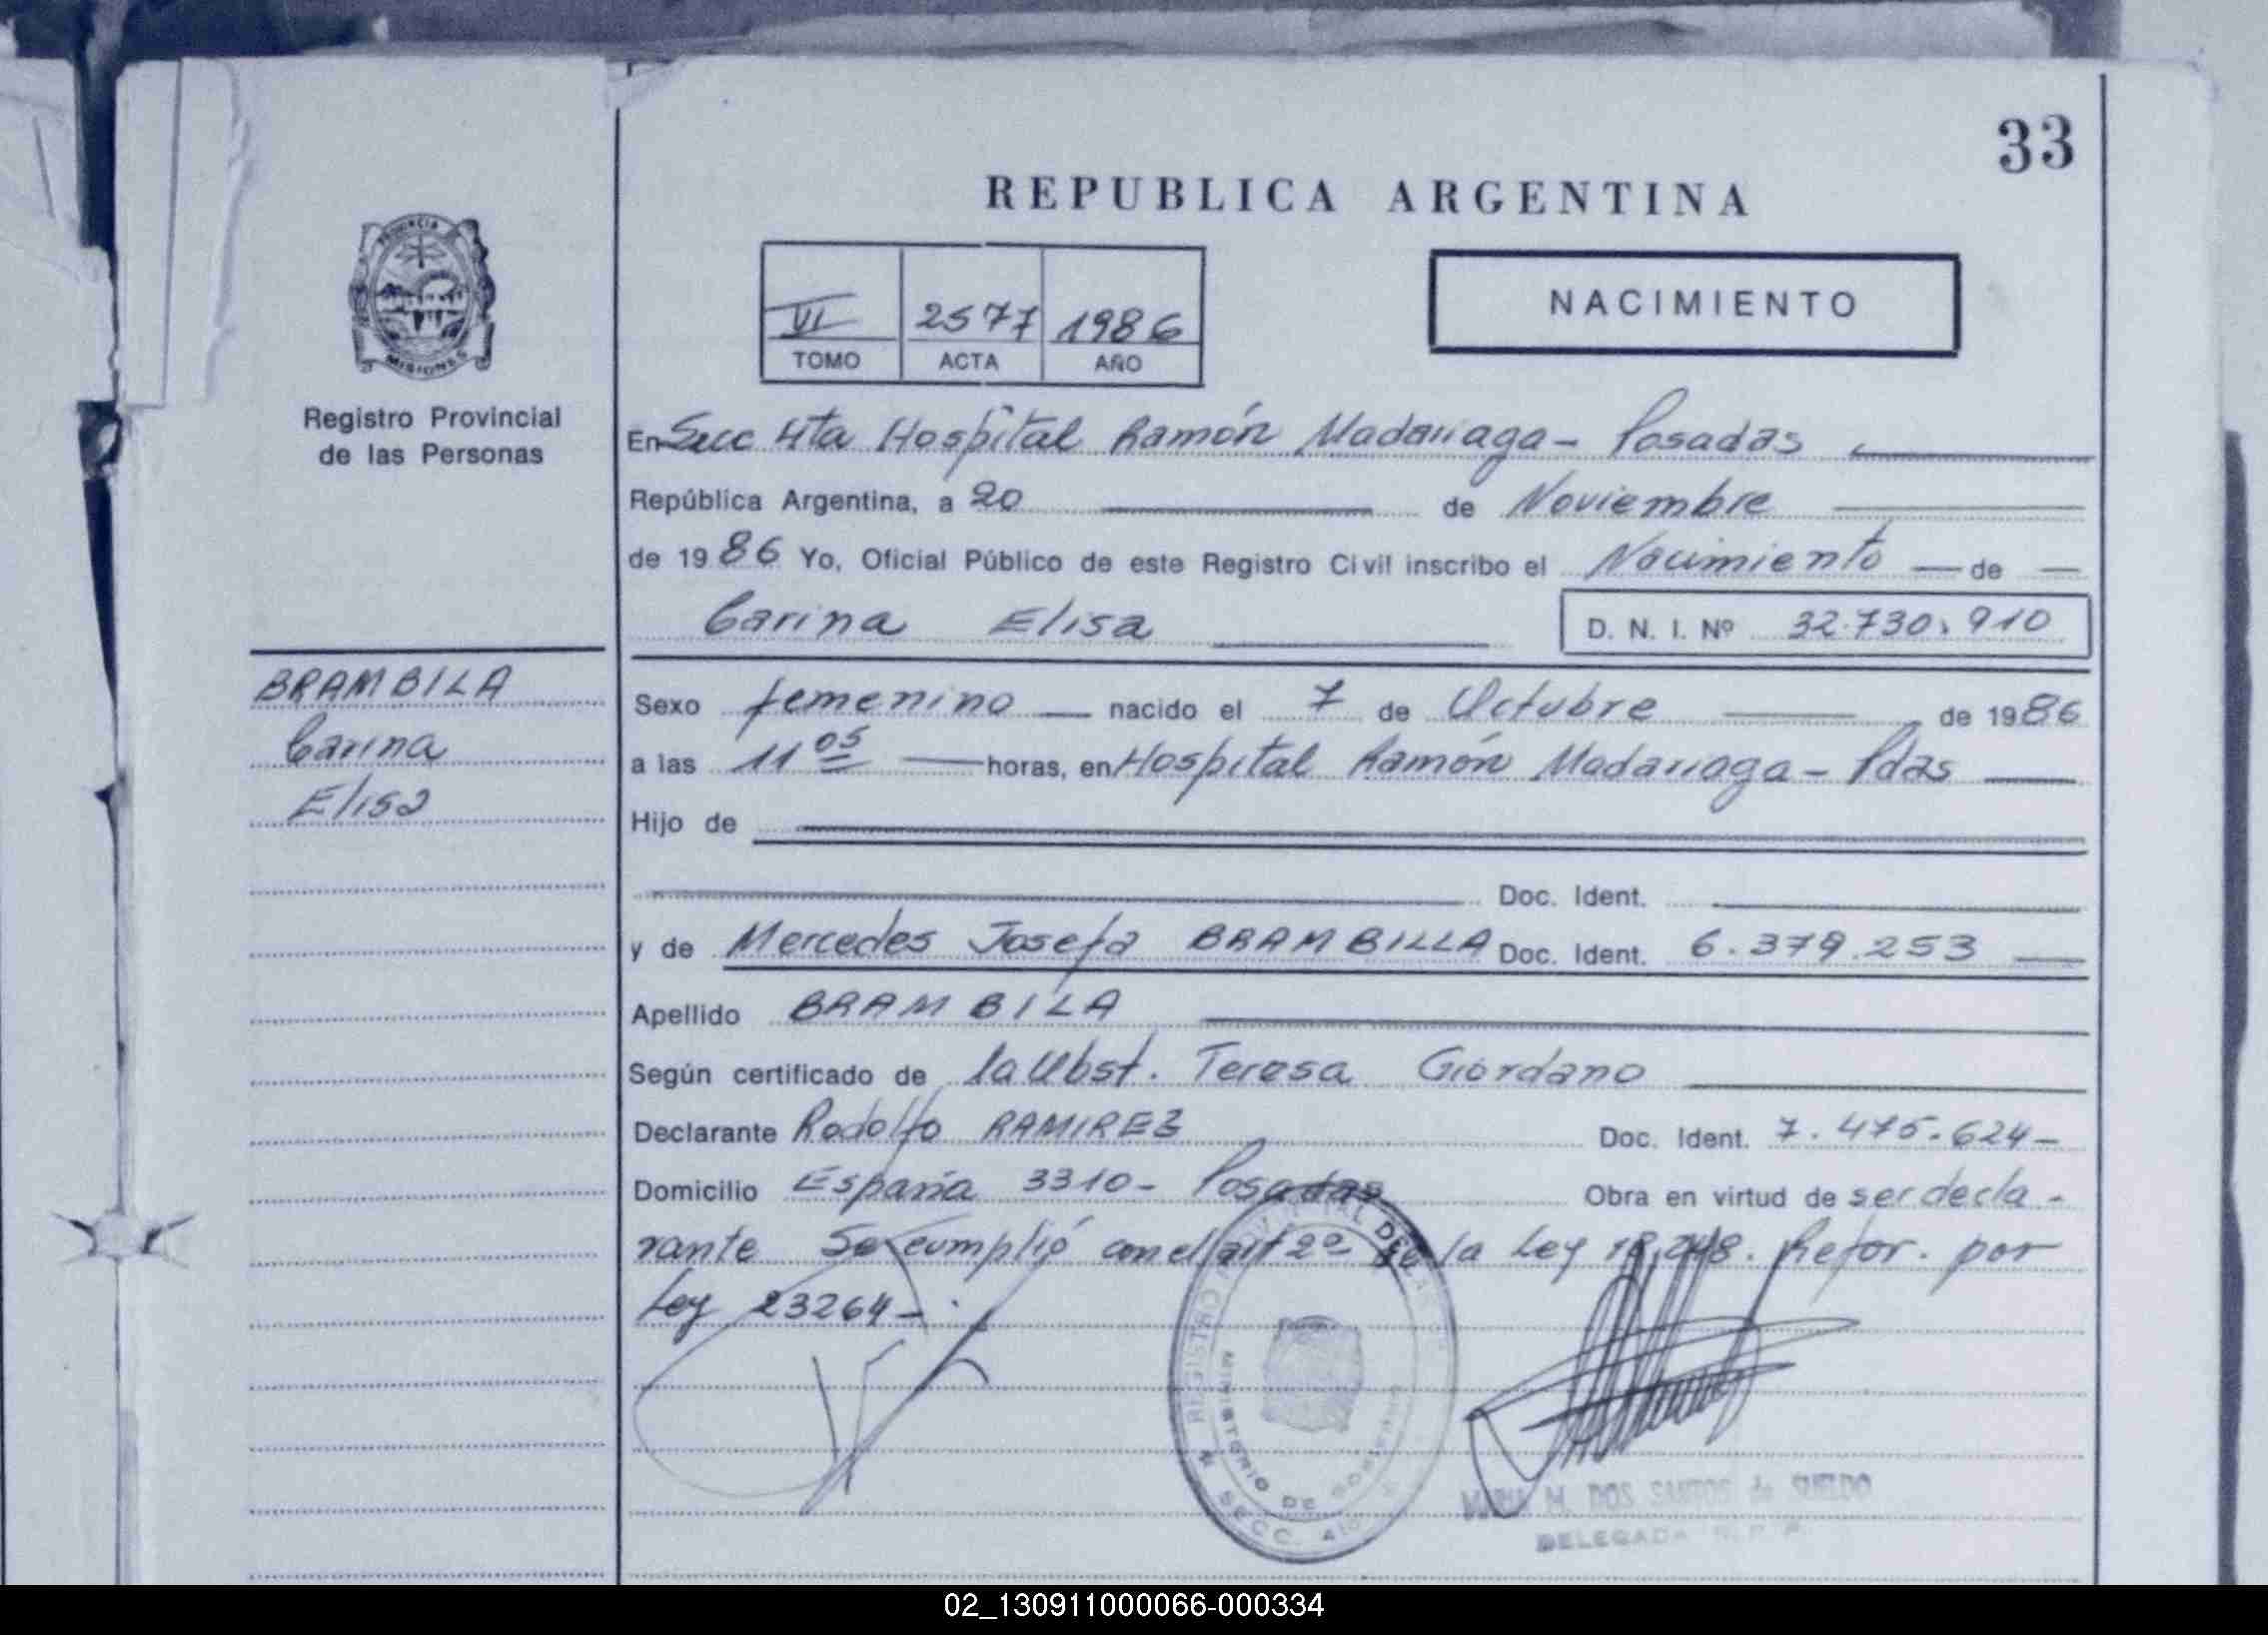 33
REPUBLICA ARGENTINA
PROVINCIA
MISIONES
Registro Provincial
de las Personas
VI 2577 1986
TOMO ACTA AÑO
NACIMIENTO
En Secc 4ta Hospital Ramón Madariaga - Posadas
República Argentina, a 20 de Noviembre
de 1986 Yo, Oficial Público de este Registro Civil inscribo el Nacimiento de
Carina Elisa D. N. I. Nº 32.730.910
BRAMBILA
Carina
Elisa
Sexo femenino nacido el 7 de Octubre de 1986
a las 11 05 horas, en Hospital Ramón Madariaga - Pdas
Hijo de
Doc. Ident.
y de Mercedes Josefa BRAMBILLA Doc. Ident. 6.379.253
Apellido BRAMBILA
Según certificado de la Obst. Teresa Giordano
Declarante Rodolfo RAMIREZ Doc. Ident. 7.475.624-
Domicilio España 3310 - Posadas Obra en virtud de ser decla-
rante Se cumplió con el art 2º de la Ley 18.248. Refor. por
Ley 23264 -
REGISTRO PROVINCIAL DE LAS
MINISTERIO DE GOBIERNO
SECC. 4ta
MARIA M. DOS SANTOS de SUELDO
DELEGADA R. P. P.
02_130911000066-000334